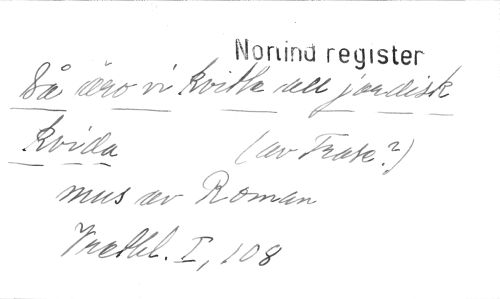 Norlind register
Så äro vi kvitta all jordisk
kvida (av Frese?)
mus av Roman
I, 108